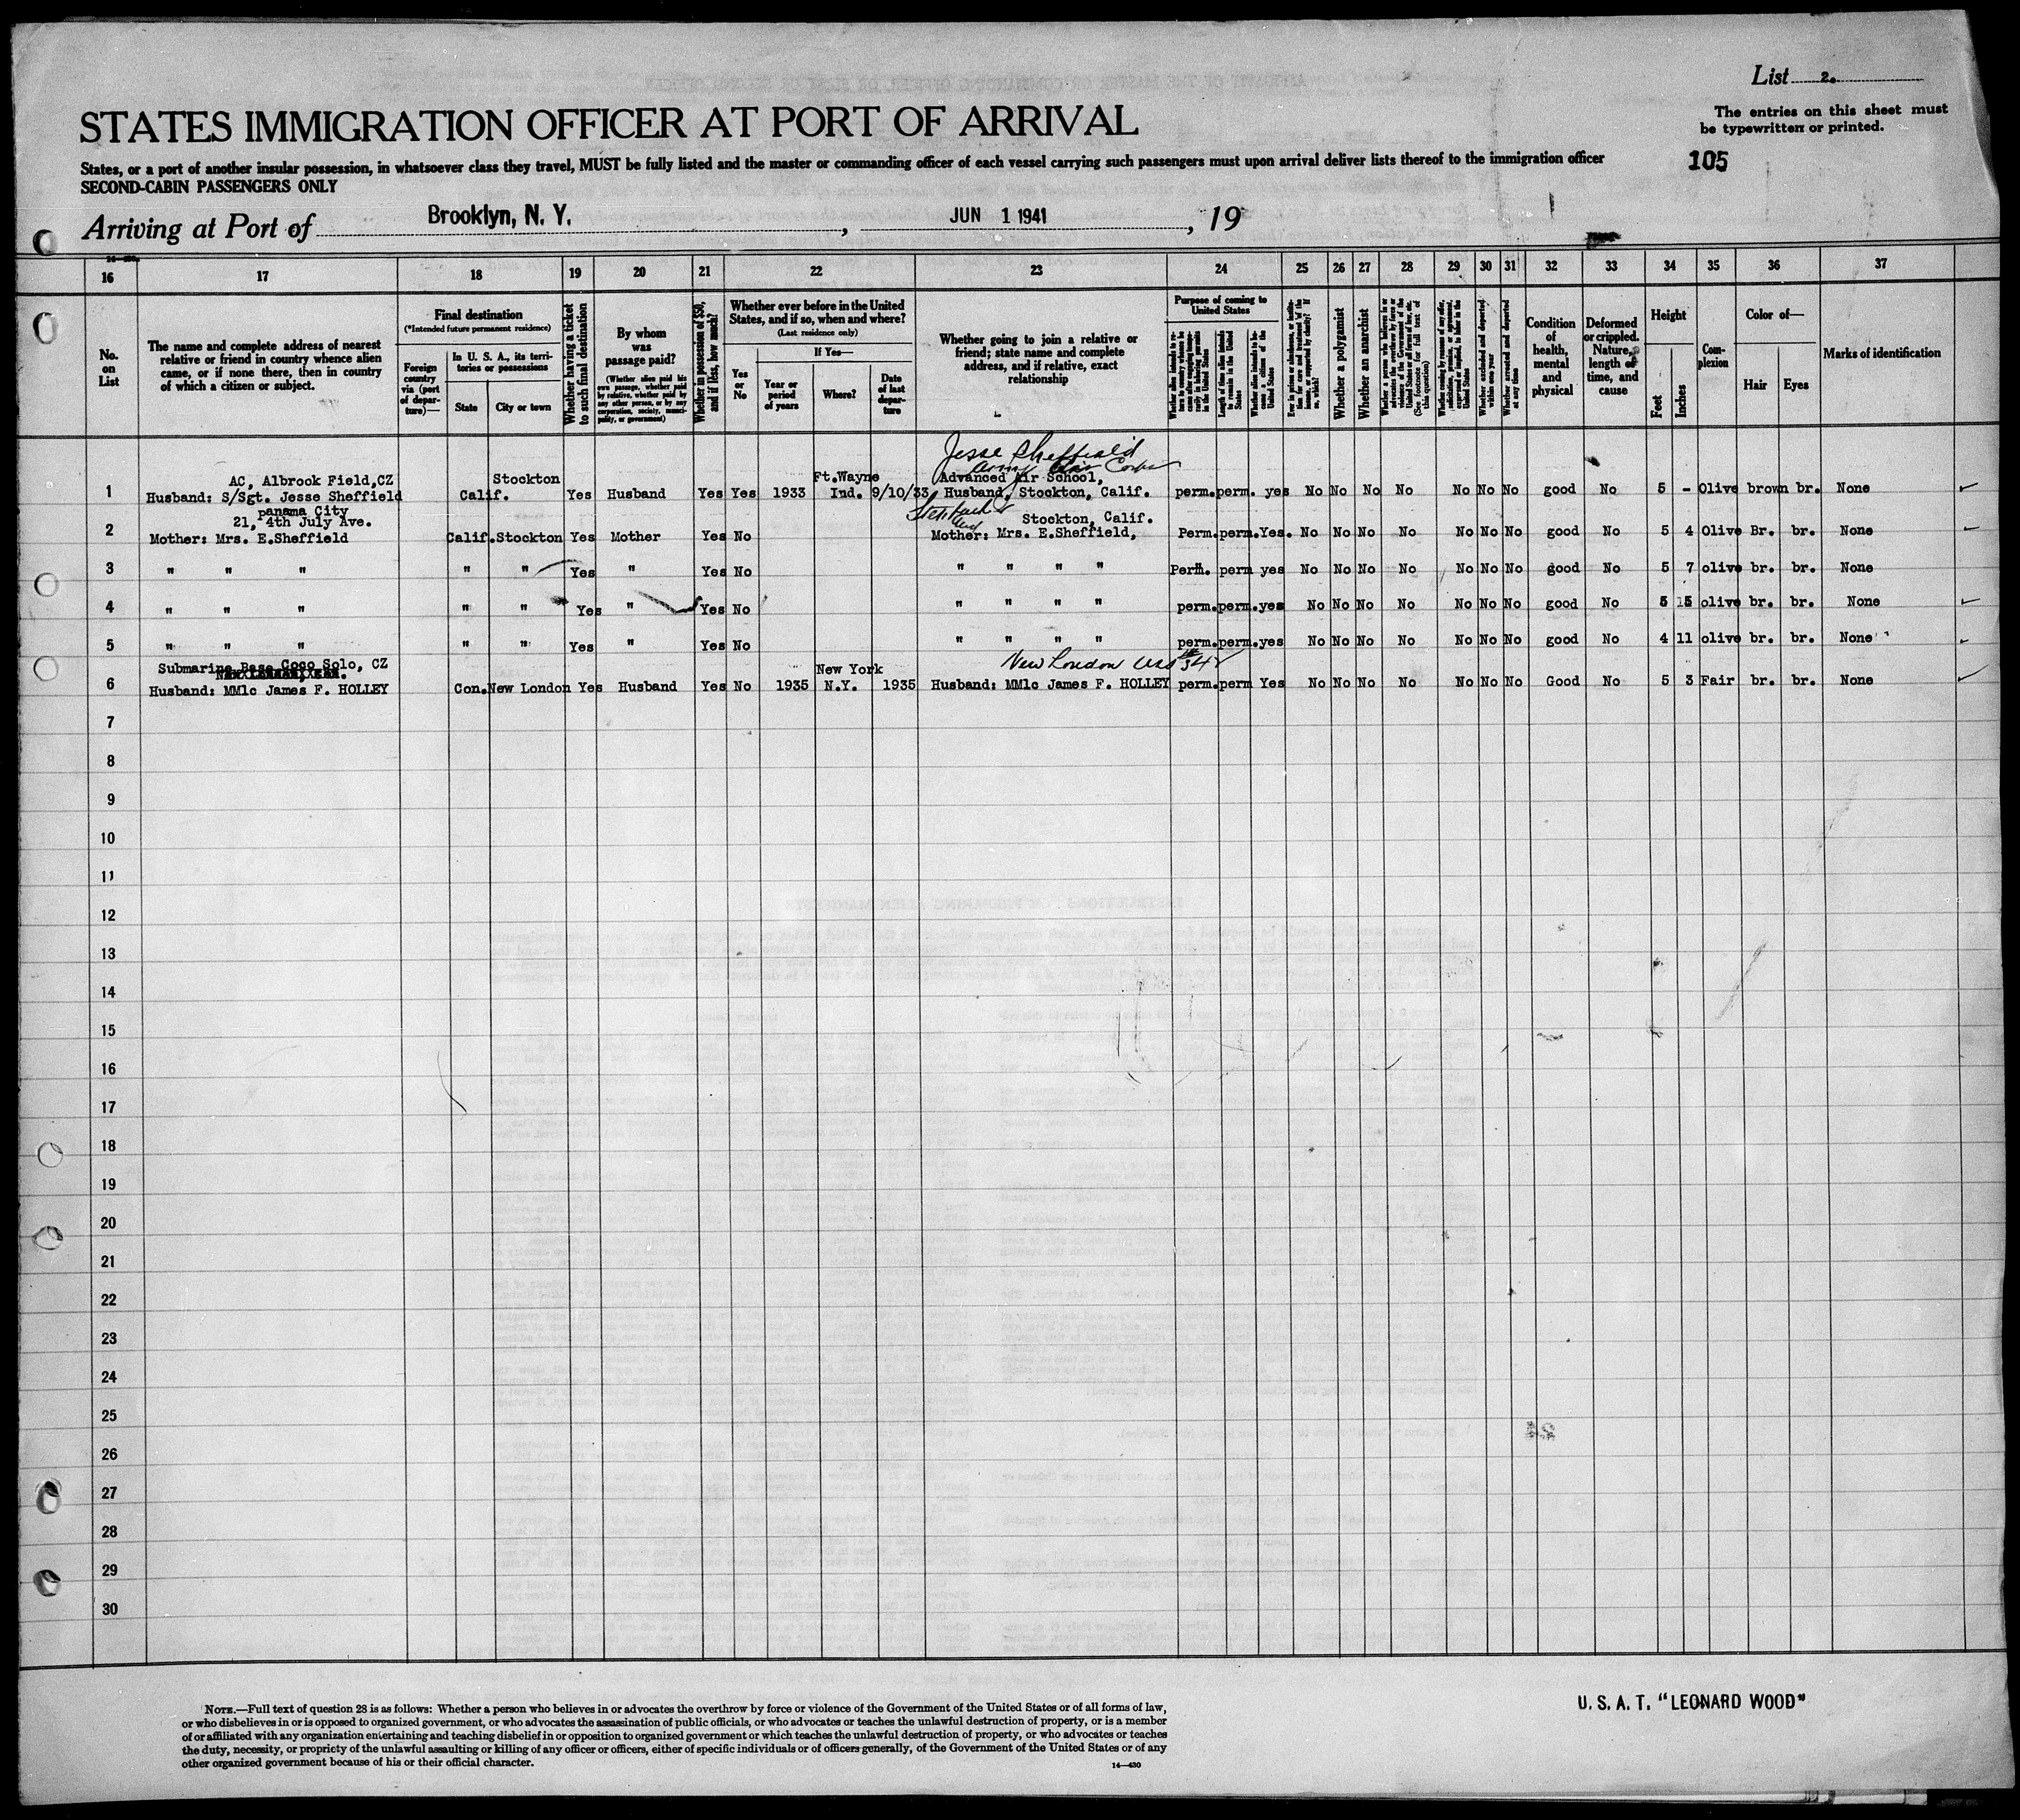 List 2.
STATES IMMIGRATION OFFICER AT PORT OF ARRIVAL
The entries on this sheet must
be typewritten or printed.
States, or a port of another insular possession, in whatsoever class they travel, MUST be fully listed and the master or commanding officer of each vessel carrying such passengers must upon arrival deliver lists thereof to the immigration officer
105
SECOND-CABIN PASSENGERS ONLY
Arriving at Port of Brooklyn, N. Y., JUN 1 1941, 19
16 17 18 19 20 21 22 23 24 25 26 27 28 29 30 31 32 33 34 35 36 37
No. on List
The name and complete address of nearest
relative or friend in country whence alien
came, or if none there, then in country
of which a citizen or subject.
Final destination
(*Intended future permanent residence)
Foreign
country
via (port
of depar-
ture)—
In U. S. A., its terri-
tories or possessions
State
City or town
Whether having a ticket
to such final destination
By whom
was
passage paid?
(Whether alien paid his
own passage, whether paid
by relative, whether paid by
any other person, or by any
corporation, society, munici-
pality, or government)
Whether in possession of $50,
and if less, how much?
Whether ever before in the United
States, and if so, when and where?
(Last residence only)
Yes
or
No
If Yes—
Year or
period
of years
Where?
Date
of last
depar-
ture
Whether going to join a relative or
friend; state name and complete
address, and if relative, exact
relationship
Purpose of coming to
United States
Length of time alien intends
to remain in the United
States
Whether alien intends to be-
come a citizen of the
United States
Whether a polygamist
Whether an anarchist
Whether excluded and deported
within one year
Whether arrested and deported
at any time
Condition
of
health,
mental
and
physical
Deformed
or crippled.
Nature,
length of
time, and
cause
Height
Feet
Inches
Com-
plexion
Color of—
Hair
Eyes
Marks of identification
Jesse Sheffield
Army Air Corps
AC, Albrook Field,CZ Stockton Ft.Wayne Advanced Air School,
1 Husband: S/Sgt. Jesse Sheffield Calif. Yes Husband Yes Yes 1933 Ind. 9/10/33 Husband, Stockton, Calif. perm. perm. yes No No No No No No No good No 5 - Olive brown br. None
panama City
21, 4th July Ave. Stockton, Calif.
2 Mother: Mrs. E.Sheffield Calif. Stockton Yes Mother Yes No Mother: Mrs. E.Sheffield, Perm. perm. Yes. No No No No No No No good No 5 4 Olive Br. br. None
3 " " " " " Yes " Yes No " " " " Perm. perm yes No No No No No No No good No 5 7 olive br. br. None
4 " " " " " Yes " Yes No " " " " perm. perm. yes No No No No No No No good No 5 olive br. br. None
5 " " " " " Yes " Yes No " " " " perm. perm. yes No No No No No No No good No 4 11 olive br. br. None
Submarine Base Coco Solo, CZ New York New London
6 Husband: MM1c James F. HOLLEY Con. New London Yes Husband Yes No 1935 N.Y. 1935 Husband: MM1c James F. HOLLEY perm. perm Yes No No No No No No No Good No 5 3 Fair br. br. None
7
8
9
10
11
12
13
14
15
16
17
18
19
20
21
22
23
24
25
26
27
28
29
30
NOTE.—Full text of question 28 is as follows: Whether a person who believes in or advocates the overthrow by force or violence of the Government of the United States or of all forms of law,
or who disbelieves in or is opposed to organized government, or who advocates the assassination of public officials, or who advocates or teaches the unlawful destruction of property, or is a member
of or affiliated with any organization entertaining and teaching disbelief in or opposition to organized government or which teaches the unlawful destruction of property, or who advocates or teaches
the duty, necessity, or propriety of the unlawful assaulting or killing of any officer or officers, either of specific individuals or of officers generally, of the Government of the United States or of any
other organized government because of his or their official character.
14—430
U. S. A. T. "LEONARD WOOD"